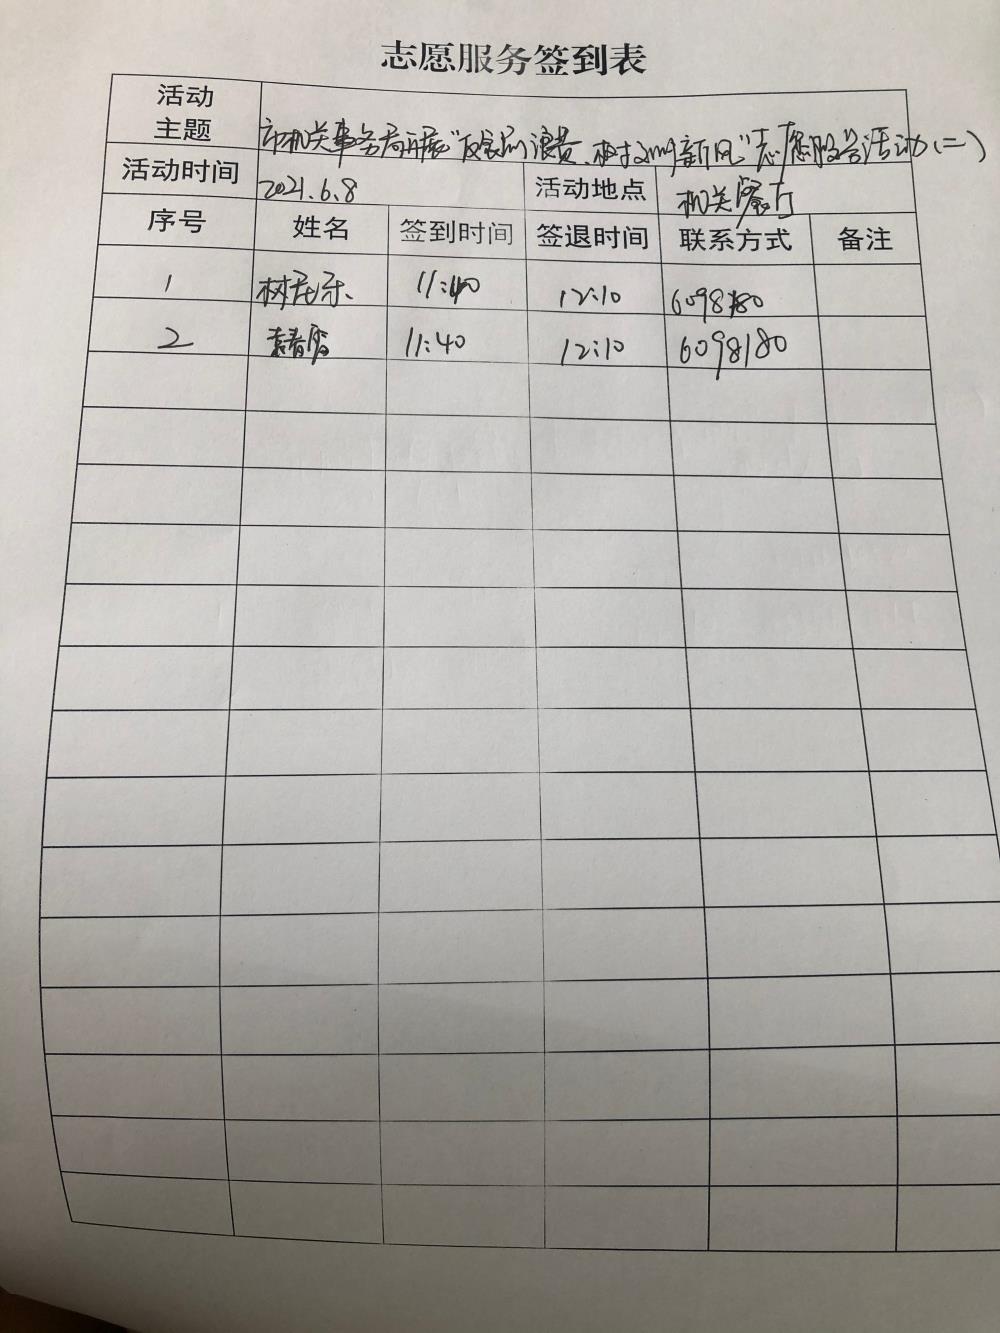 志愿服务签到表
活动主题 市机关事务局开展"反食品浪费、树文明新风"志愿服务活动(二)
活动时间 2021.6.8 活动地点 机关餐厅
序号 姓名 签到时间 签退时间 联系方式 备注
1 11:40 12:10 6098180
2 11:40 12:10 6098180